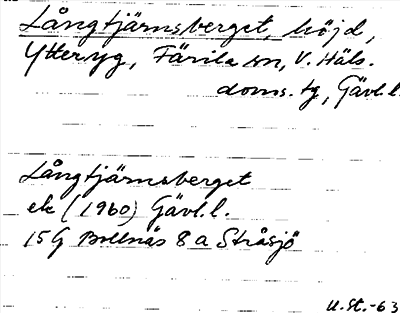 Långtjärnsberget, höjd,
Ytteryg, Färila sn, V. Häls.
doms. tg, Gävl.l.
Långtjärnsberget
ek (1960) Gävl.l.
15G Bollnäs 8a Stråsjö
U.St.-63